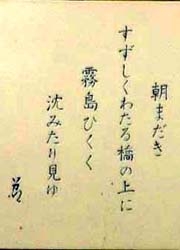 朝まだき
すずしくわたる橋の上に
霧島ひくく
沈みたり見ゆ